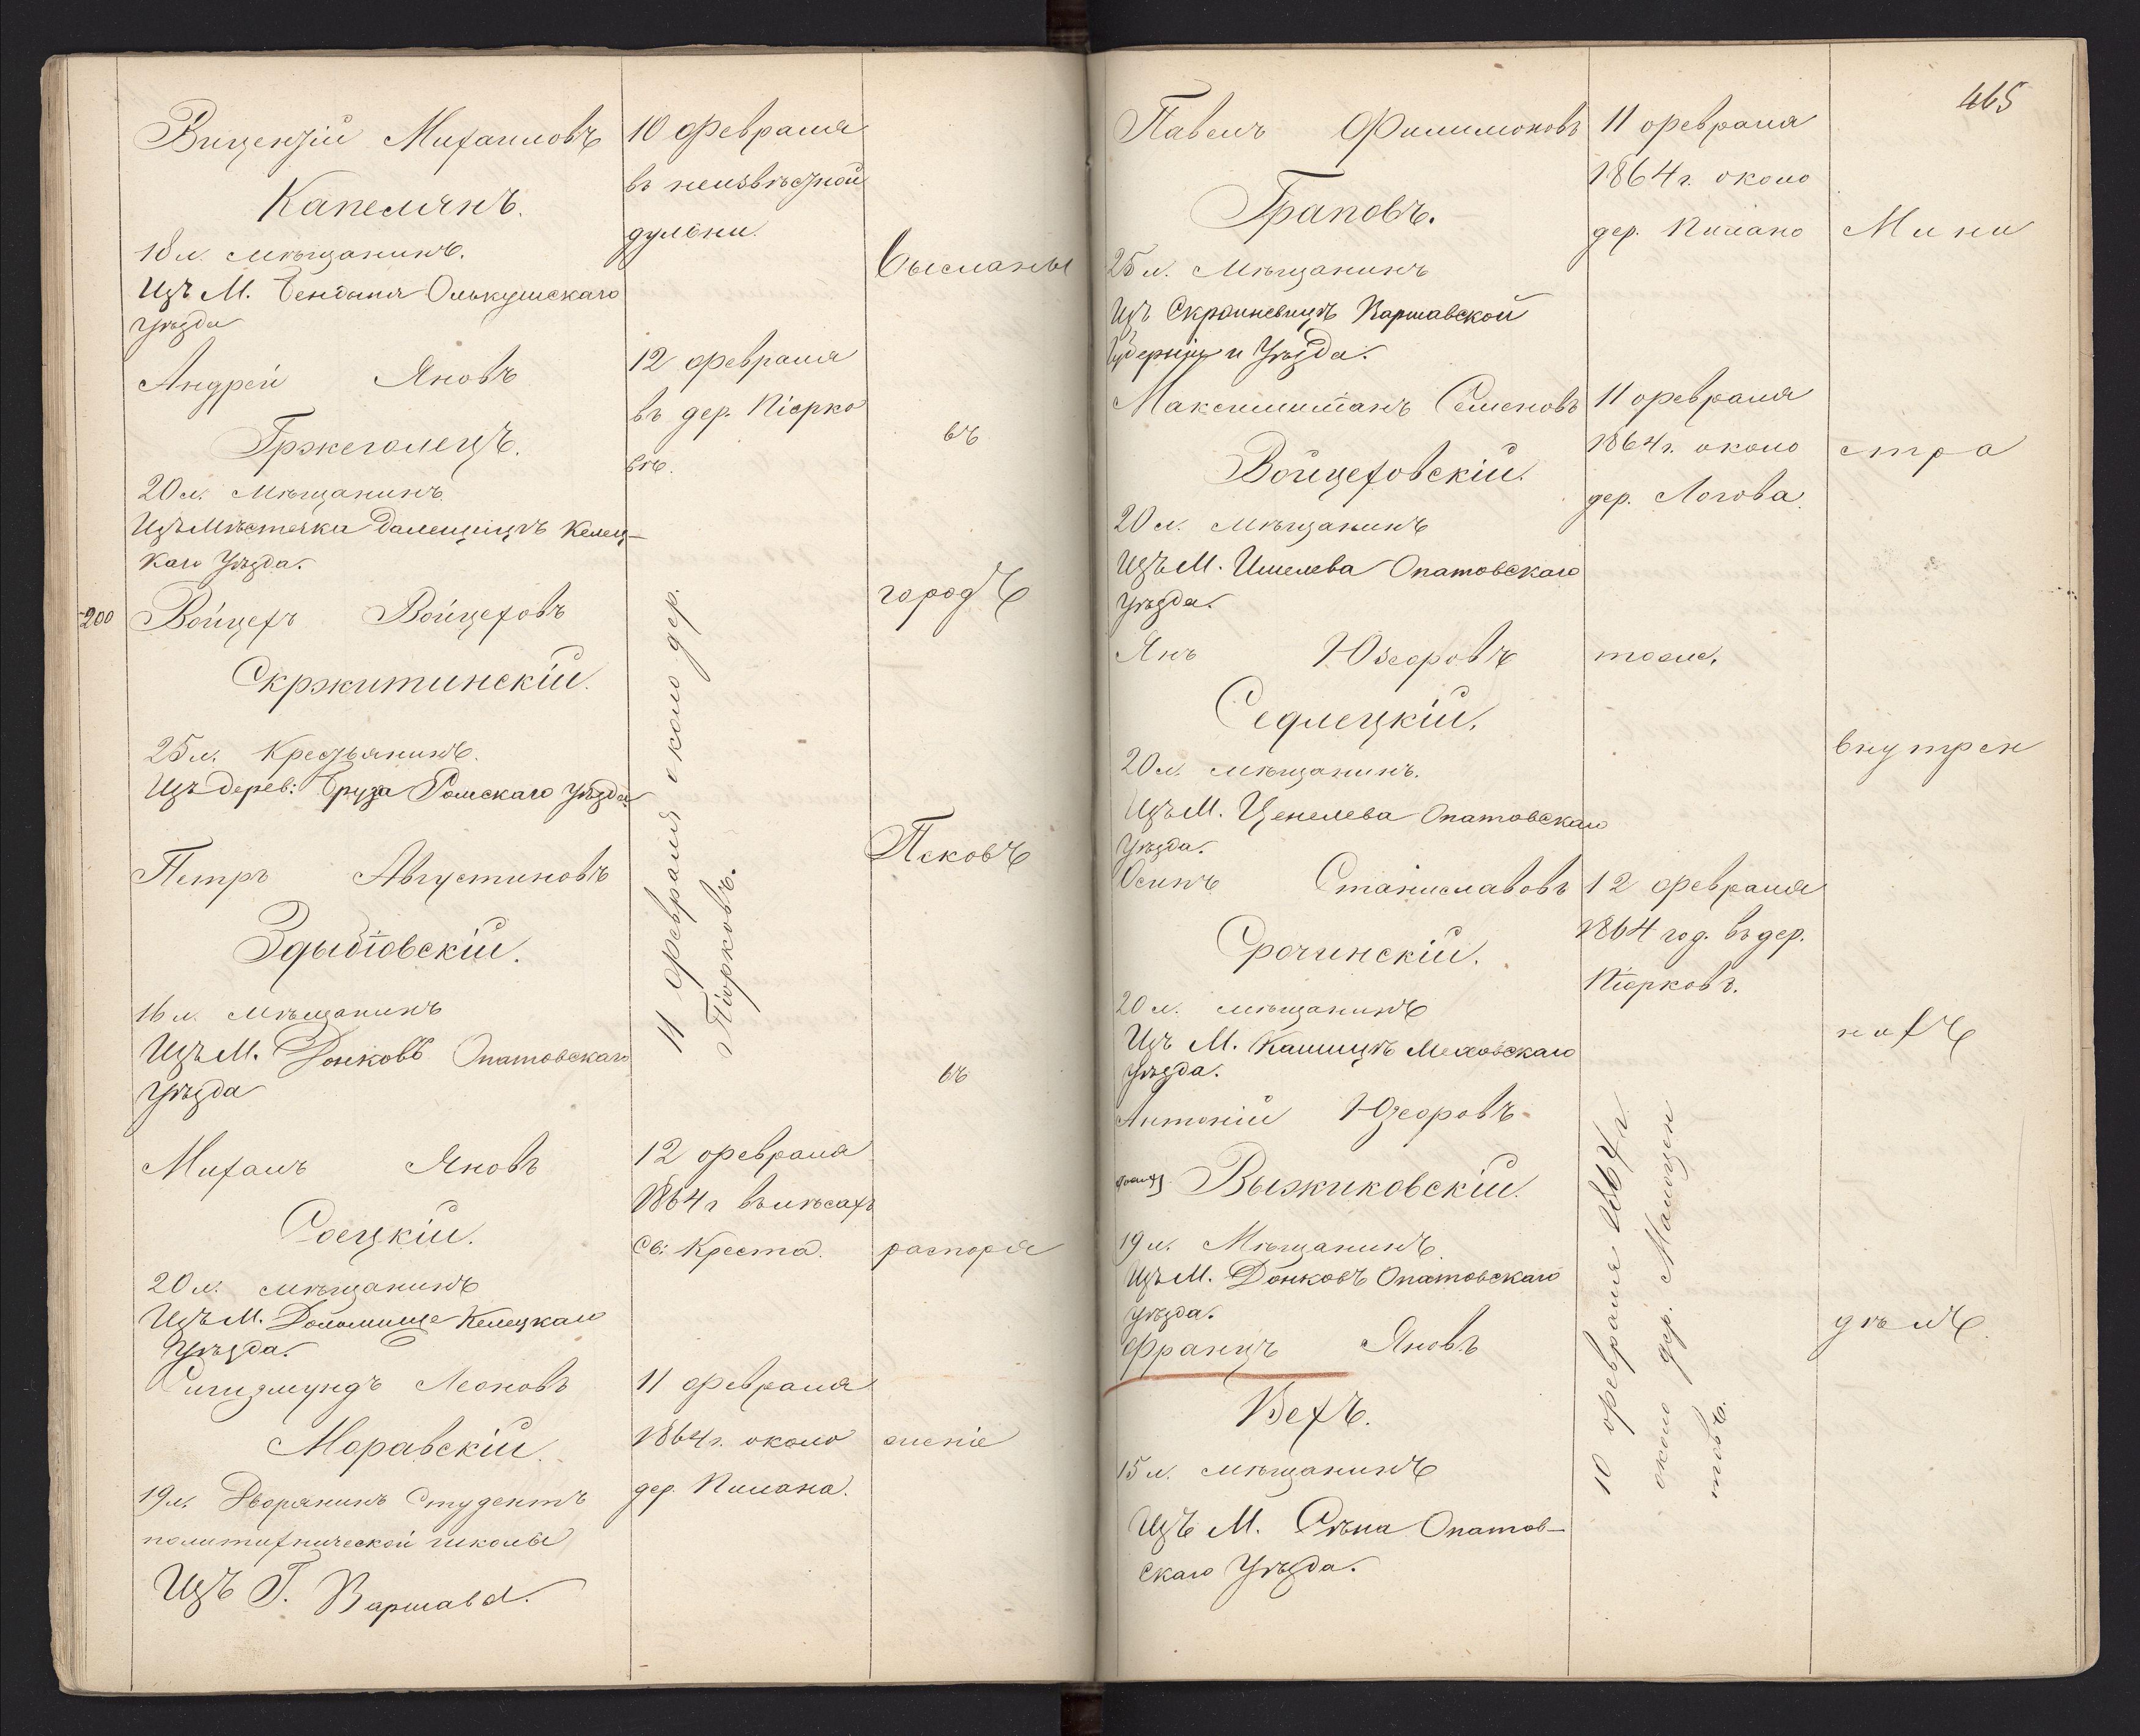 Виценьтій Михаиловъ
Капелянъ.
18 л. мѣщанинъ.
Изъ М. Бендыня Олькушскаго
Уѣзда
10 февраля
въ неизвѣстной
дулони.
Высланы
Андрей Яновъ
Гржеголецъ.
20 л. мѣщанинъ
Изъ Мѣстечка Далешицъ Келец-
каго Уѣзда.
12 февраля
въ дер. Піорко
вѣ.
въ
200
Войцехъ Войцеховъ
Скржитинскій.
25 л. Крестьянинъ.
Изъ дерев: Бруза Уѣзда
11 февраля около дер.
Піорковъ.
городъ
Петръ Августиновъ
Здыбіовскій.
16 л. мѣщанинъ
Изъ М. Донковъ Опатовскаго
Уѣзда
Псковъ
въ
Михаилъ Яновъ
Соецкій.
20 л. мѣщанинъ
Изъ М. Келецкаго
Уѣзда.
12 февраля
1864 г въ лѣсахъ
Св: Креста.
распоря
Сигизмундъ Леоновъ
Моравскій.
19 л. Дворянинъ Студентъ
политихнической школы
Изъ Г. Варшавы.
11 февраля
1864 г. около
дер. Пилана.
женіе
465
Павелъ Филимоновъ
Граповъ.
25 л. Мѣщанинъ
Изъ Скрыневицъ Варшавской
Губерніи и Уѣзда.
11 февраля
1864 г. около
дер. Пилано
Мини
Максимиліанъ Семеновъ
Войцеховскій.
20 л. мѣщанинъ
Изъ М. Имелева Опатовскаго
Уѣзда.
11 февраля
1864 г. около
дер. Логова.
стра
Янъ Юзефовъ
Седлецкій.
20 л. мѣщанинъ.
Изъ М. Цепелева Опатовскаго
Уѣзда.
тоже.
внутрен
Осипъ Станиславовъ
Срочинскій.
20 л. мѣщанинъ
Изъ М. Кашицъ Меховскаго
Уѣзда.
12 февраля
1864 год. въ дер.
Піорковъ.
нихъ
Антоній Юзефовъ
Выжиковскій.
19 л. Мѣщанинъ
Изъ М. Донковъ Опатовскаго
Уѣзда.
10 февраля 1864 г.
около дер. Малоцен
товъ.
дѣлъ.
Францъ Яновъ
Вехъ.
15 л. мѣщанинъ
Изъ М. Опатов-
скаго Уѣзда.